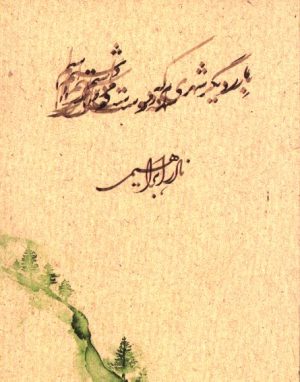 بار دیگر شهری که دوست می‌داشتم
نادر ابراهیمی